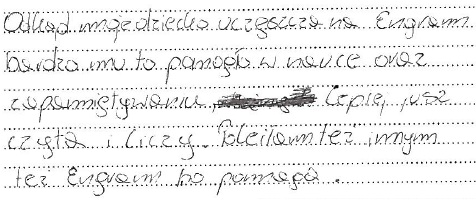 Odkąd moje dziecko uczęszcza na Engram
bardzo mu to pomogło w nauce oraz
zapamiętywaniu, lepiej już
czyta i liczy. Poleciłam też innym
też Engram bo pomaga.